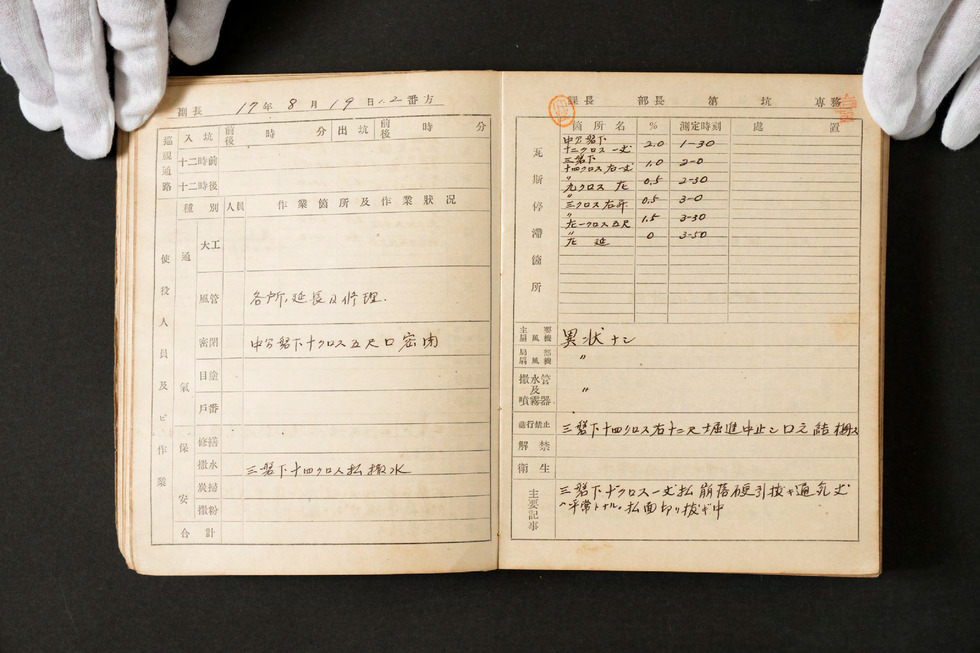 副長 17年8月19日1.2番方
巡視通路 入坑 前後 時 分 出坑 前後 時 分
十二時前
十二時後
種別 人員 作業箇所及作業狀况
使役人員及ビ作業
通氣保安
大工
風管 各所、延長及修理.
密閉 中分盤下十クロス五尺口密閉
目塗
戶番
修繕
撒水 三盤下十四クロス払撒水
炭掃
撒粉
合計
課長 部長 第 坑 専務
瓦斯停滯箇所
箇所名 % 測定時刻 處置
中分盤下
十二クロス一丈 2.0 1-30
三盤下
十四クロス右一丈 1.0 2-0
〃
九クロス左 0.5 2-30
〃
三クロス右昇 0.5 3-0
〃
左一クロス五尺 1.5 3-30
〃
左延 0 3-50
主要扇風機 異状ナシ
局部扇風機 〃
撒水管及噴霧器 〃
通行禁止 三盤下十四クロス右十二尺堀進中止シ口元結柵ス
解禁
衛生
主要記事
三盤下十クロス一丈払崩落硬引抜キ通気丈
ハ平常トナル.払面切リ抜ギ中